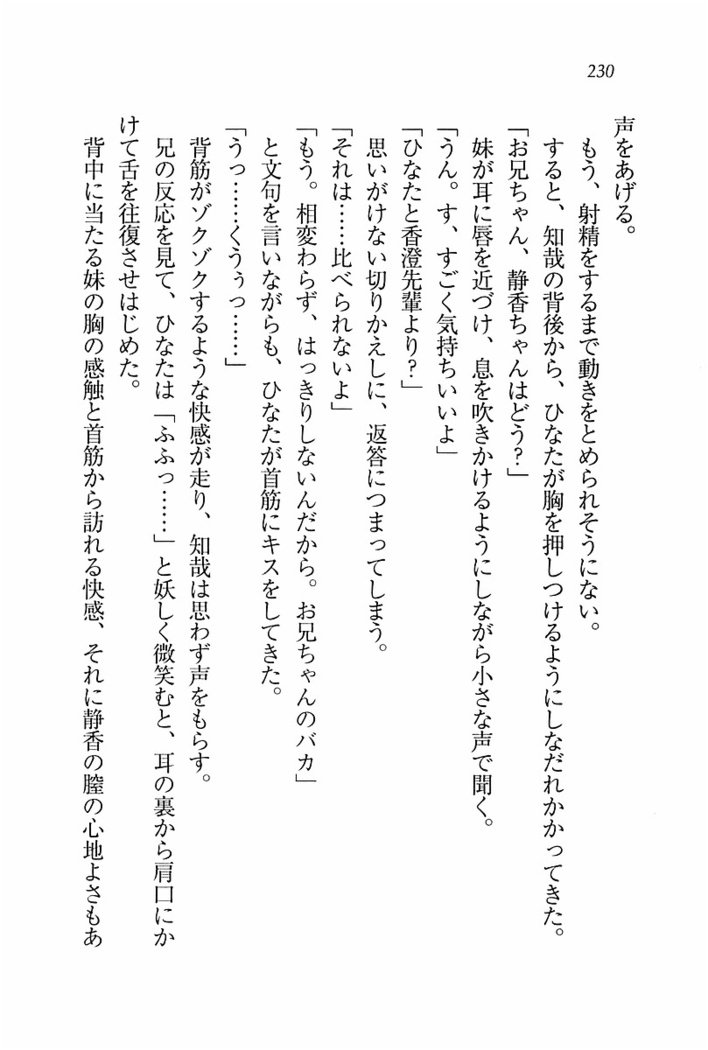 230
声をあげる。
もう、射精をするまで動きをとめられそうにない。
すると、知哉の背後から、ひなたが胸を押しつけるようにしなだれかかってきた。
「お兄ちゃん、静香ちゃんはどう?」
妹が耳に唇を近づけ、息を吹きかけるようにしながら小さな声で聞く。
「うん。す、すごく気持ちいいよ」
「ひなたと香澄先輩より?」
思いがけない切りかえしに、返答につまってしまう。
「それは……比べられないよ」
「もう。相変わらず、はっきりしないんだから。お兄ちゃんのバカ」
と文句を言いながらも、ひなたが首筋にキスをしてきた。
「うっ……くうぅっ……」
背筋がゾクゾクするような快感が走り、知哉は思わず声をもらす。
兄の反応を見て、ひなたは「ふふっ……」と妖しく微笑むと、耳の裏から肩口にか
けて舌を往復させはじめた。
背中に当たる妹の胸の感触と首筋から訪れる快感、それに静香の膣の心地よさもあ